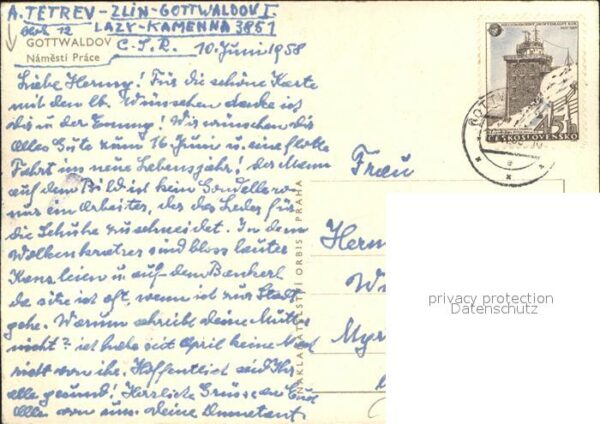 A. TETREV - ZLÍN - GOTTWALDOV I.
LAZY - KAMENNA 3851
GOTTWALDOV
Č.S.R. 10. Juni 1958
Náměstí Práce
Liebe Hermy! Für die schöne Karte
mit den lb. Wünschen danke ich
dir in der Wir wünschen dir
alles Gute zum 16 Juni u. eine flotte
Fahrt ins neue Lebensjahr! der Mann
auf dem Bild ist kein
nur ein Arbeiter, der das Leder für
die Schuhe zuschneidet. In dem
Wolkenkratzer sind bloss lauter
Kanzleien u. auf dem Bankerl
da sitz ich oft, wenn ich zur Stadt
gehe. Warum schreibt deine Mutter
nicht? ich habe seit April keine
von ihr. Hoffentlich seid Ihr
alle gesund! Herzliche Grüsse an Euch
Alle von uns. deine
NAKLADATELSTVÍ ORBIS PRAHA
ČESKOSLOVENSKO
Frau
Herm
W
Myr
privacy protection
Datenschutz